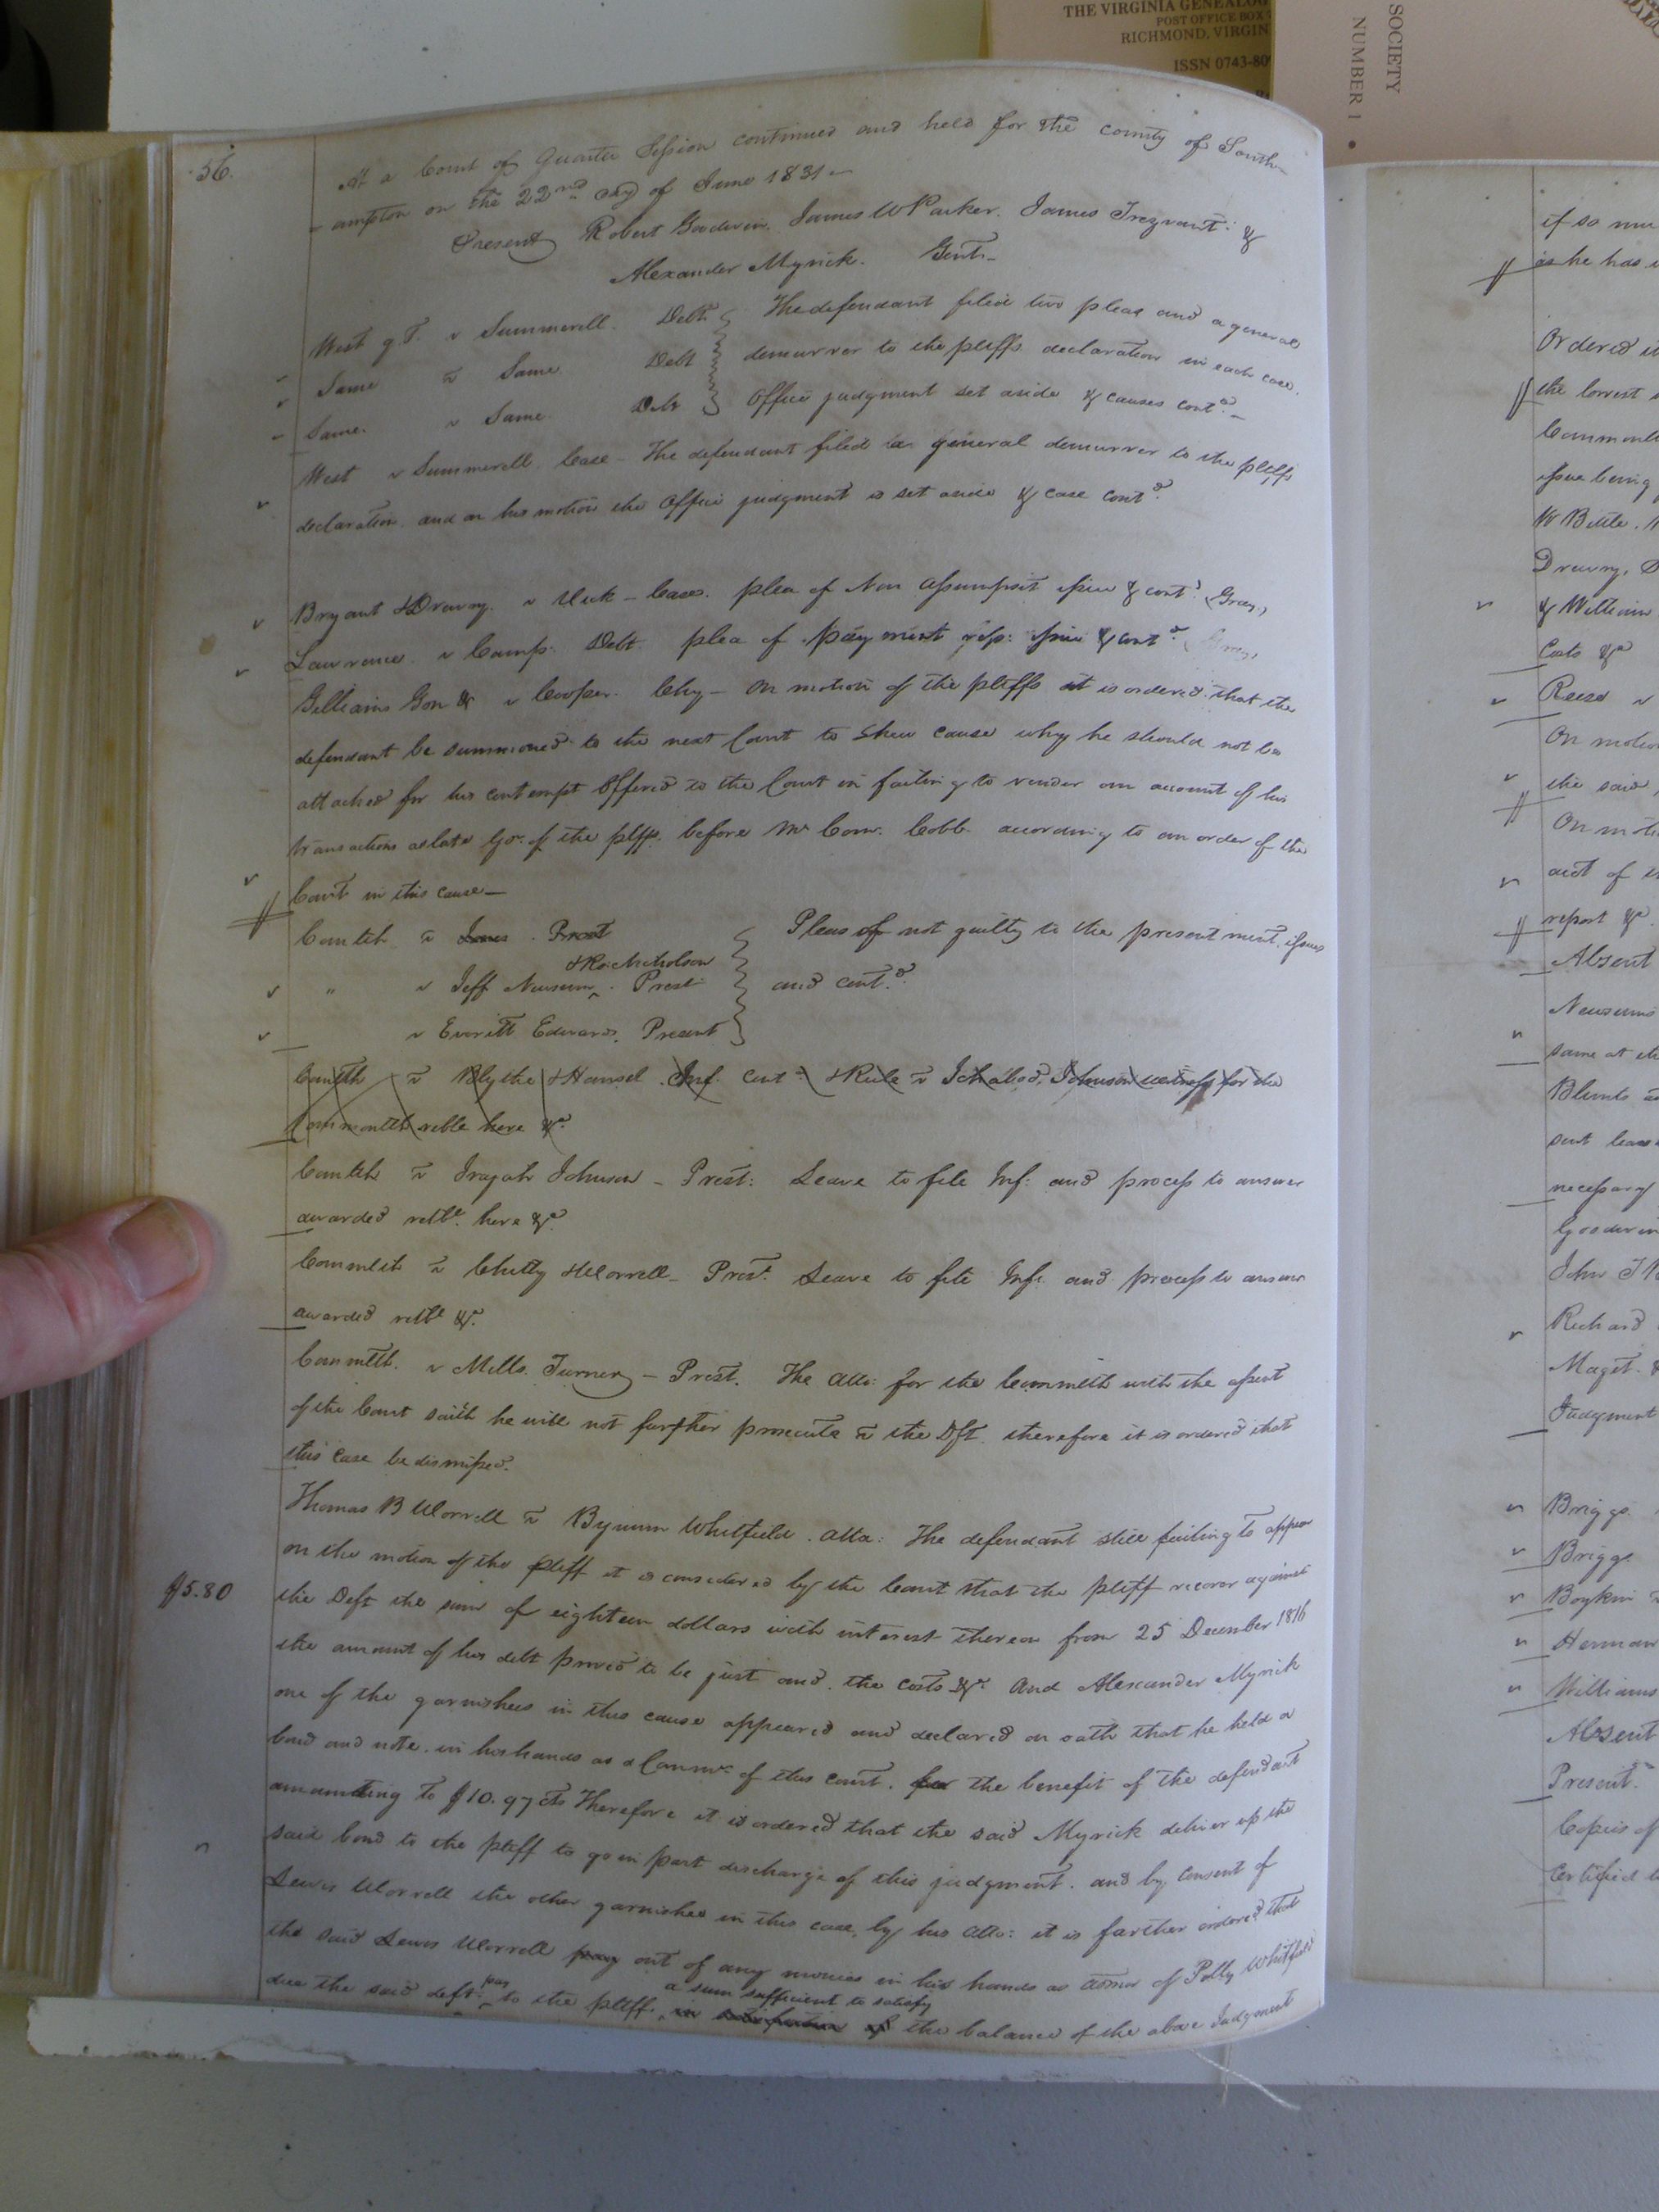 THE VIRGINIA GENEALOG
POST OFFICE BOX
RICHMOND, VIRGIN
ISSN 0743-80
SOCIETY
NUMBER 1 •
56.
At a Court of Quarter Session continued and held for the county of South-
-ampton on the 22nd day of June 1831 —
Present Robert Goodwin. James W Parker. James Trezvant. &
Alexander Myrick. Gent.
West g.T. v Summerell. Debt The defendant filed two pleas and a general
Same v Same. Debt demurrer to the pltffs declaration in each case.
Same. v Same. Debt Office judgment set aside & causes contd. —
West v Summerell. Case – The defendant filed a general demurrer to the pltffs
declaration. and on his motion the office judgment is set aside & case contd.
Bryant & Drewry. v Meek – Case. plea of Non assumpsit issue & contd. (Gray,)
Lawrence. v Camp. Debt. plea of payment rep: issue & contd.
Gilliams Gon & v Cooper. Chy – On motion of the pltffs it is ordered that the
defendant be summoned to the next Court to shew cause why he should not be
attached for his contempt offered to the Court in failing to render an account of his
transactions as late Gon. of the pltffs. before Mr Com. Cobb. according to an order of the
Court in this cause —
Comtth v Jones. Prest Pleas of not guilty to the presentment, issues
& Ro: Nicholson
" v Jeff Newsum. Prest and contd.
v Everitt Edwards. Present
Comtth v Blythe & Hansel. Inf. cont. & Rule v Ichabod Johnson witness for the
Commonlth retble here &c.
Comtth v Irajah Johnson – Prest: Leave to file Inf: and process to answer
awarded retble. here &c.
Commlth v Chitty & Worrell – Prest. Leave to file Inf: and process to answer
awarded retble &c.
Commtth. v Mills. Turner – Prest. The atto: for the Commtth with the assent
of the Court saith he will not further prosecute v the Dft. therefore it is ordered that
this case be dismissed.
Thomas B Worrell v Bynum Whitfield. atta: The defendant still failing to appear
on the motion of the pltff it is considered by the Court that the pltff recover against
$5.80
the Deft the sum of eighteen dollars with interest thereon from 25 December 1816
the amount of his debt proved to be just and. the costs &c. And Alexander Myrick
one of the garnishees in this cause appeared and declared on oath that he held a
bond and note. in his hands as a Commr. of this court. for the benefit of the defendant
amounting to $10.97 cts Therefore it is ordered that the said Myrick deliver up the
said bond to the pltff to go in part discharge of this judgment. and by consent of
Lewis Worrell the other garnishee in this case, by his atto: it is farther ordered that
the said Lewis Worrell pay out of any monies in his hands as admr of Polly Whitfield
due the said deft. pay to the pltff. a sum sufficient to satisfy in satisfaction of the balance of the above Judgment
if so mu
as he has
Ordered
the lowest
Commonl
issue being
W Bittle.
Drewry,
& William
Costs &c
Reese v
On motio
the said
On moti
report &c
Absent
Newsums
same at
Blunts
necessary
Goodwin
Richard
Maget.
Judgment
Briggs.
Briggs.
Boykin
Williams
Absent
Present.
Copies of
Certified